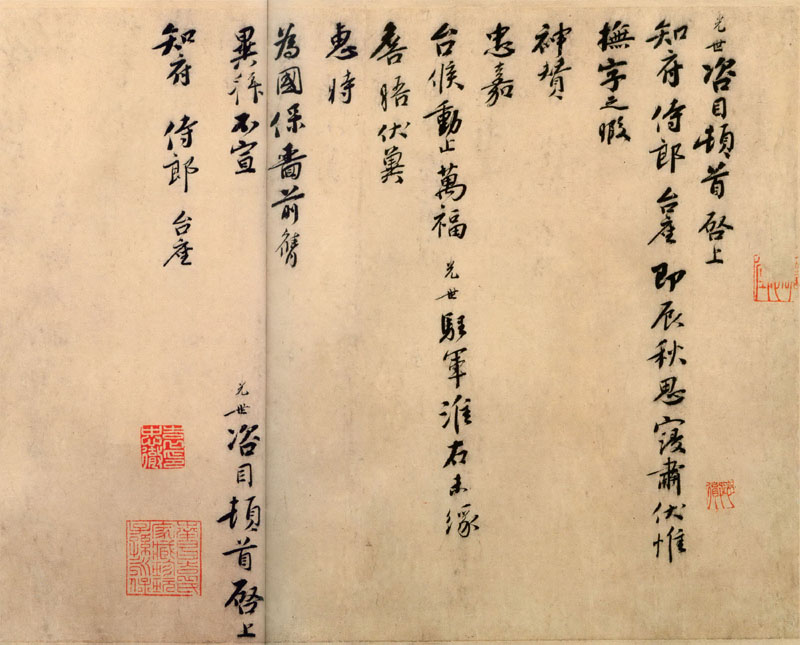 光世咨目頓首啓上
知府侍郎台座即辰秋思寖肅伏惟
撫字之暇
神賛
忠嘉
台候動止萬福光世駐軍淮右未緣
喜晤伏冀
惠時
為國保嗇前膺
異拜不宣
光世咨目頓首啓上
知府侍郎台座